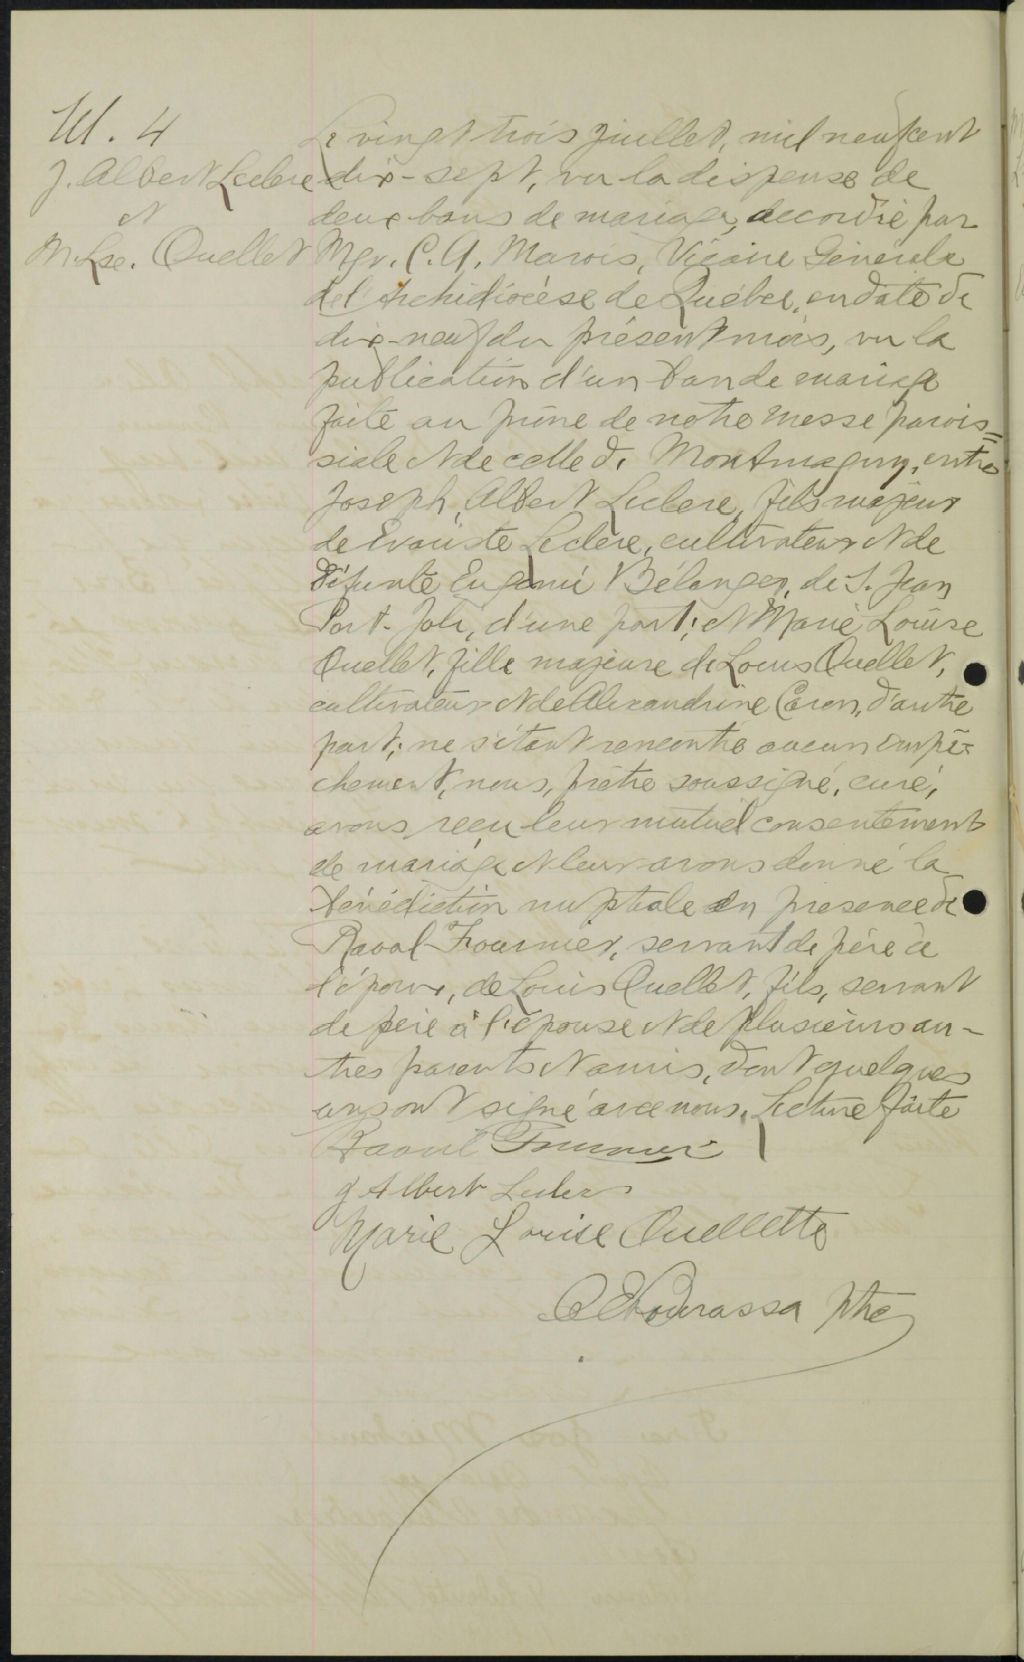 M. 4
J. Albert Leclerc
et
M. Lse. Ouellet
Le vingt trois juillet, mil neuf cent
dix-sept, vu la dispense de
deux bans de mariage, accordée par
Mgr. C. A. Marois, Vicaire Générale
de l'Archidiocèse de Québec, en date de
dix-neuf du présent mois, vu la
publication d'un ban de mariage
faite au prône de notre messe parois=
siale et de celle de Montmagny, entre
Joseph, Albert Leclerc, fils majeur
de Evariste Leclerc, cultivateur et de
défunte Eugénie Bélanger, de S. Jean
Port-Joli, d'une part; et Marie Louise
Ouellet, fille majeure de Louis Ouellet,
cultivateur et de Alexandrine Caron, d'autre
part; ne s'étant rencontré aucun empê-
chement, nous, prêtre soussigné, curé,
avons reçu leur mutuel consentement
de mariage et leur avons donné la
bénédiction nuptiale en présence de
Raoul Fournier, servant de père à
l'époux, de Louis Ouellet, fils, servant
de père à l'épouse et de plusieurs au-
tres parents et amis, dont quelques
uns ont signé avec nous. Lecture faite
Raoul Fournier
J Albert Leclerc
Marie Louise Ouellette
Bourassa ptre